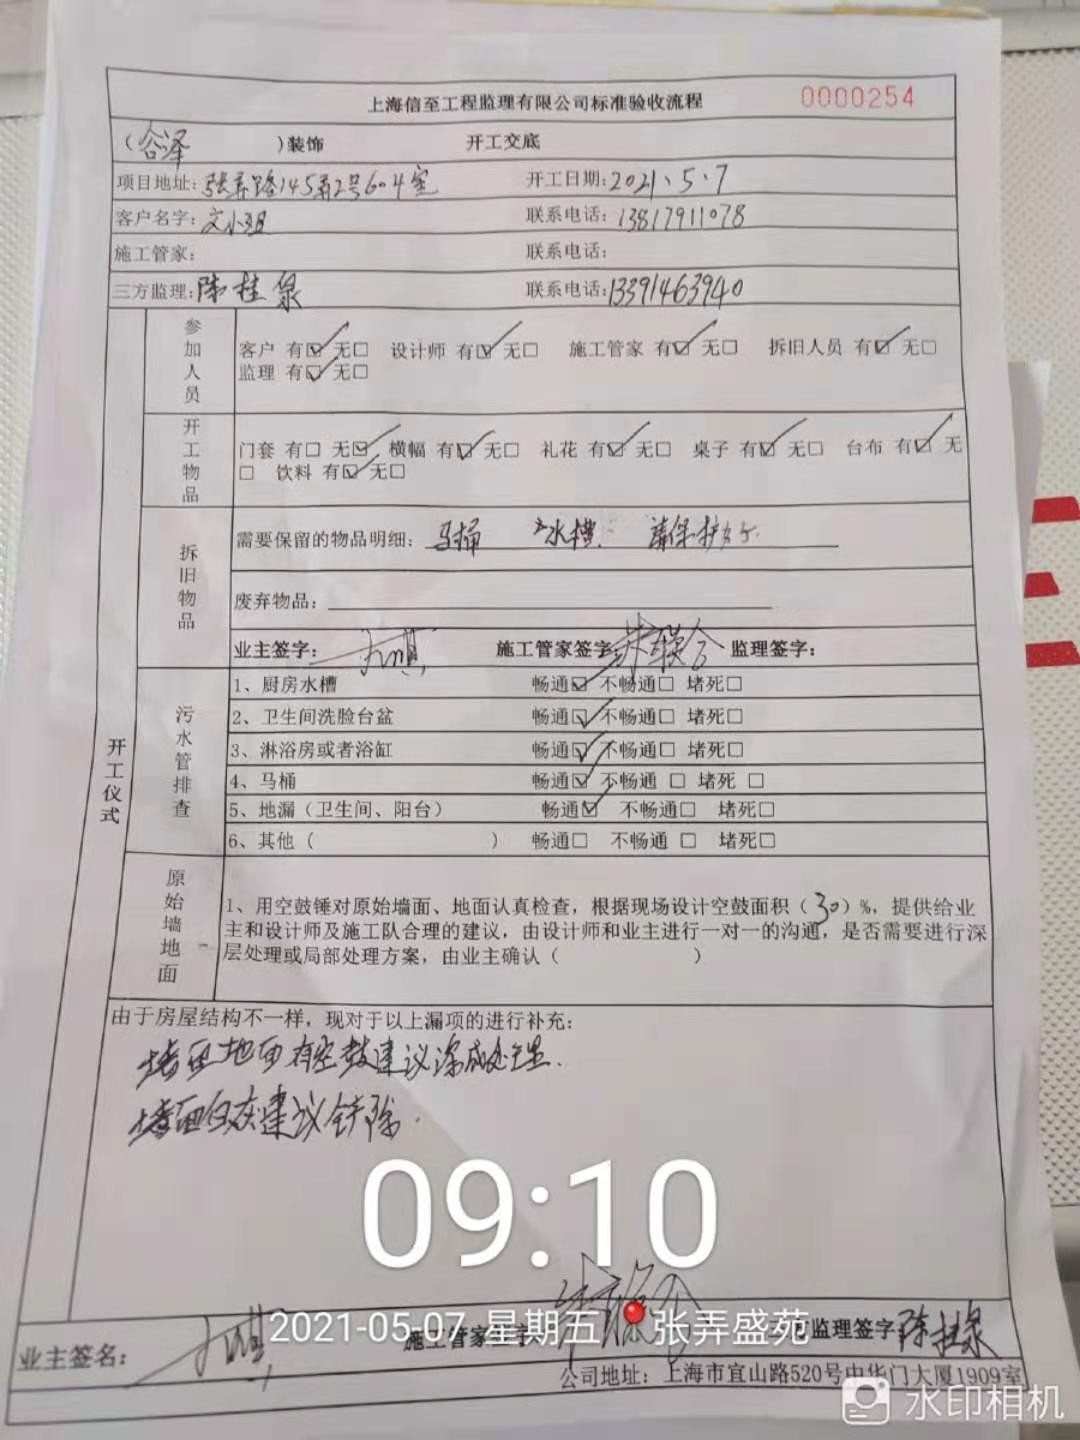 上海信至工程监理有限公司标准验收流程 0000254
(谷泽 )装饰 开工交底
项目地址:张弄路145弄2号604室 开工日期:2021.5.7
客户名字:文小姐 联系电话:13817911078
施工管家: 联系电话:
三方监理:陈桂泉 联系电话:13391463940
开工仪式
参加人员
客户 有☑ 无□ 设计师 有☑ 无□ 施工管家 有☑ 无□ 拆旧人员 有☑ 无□
监理 有☑ 无□
开工物品
门套 有□ 无☑ 横幅 有☑ 无□ 礼花 有☑ 无□ 桌子 有☑ 无□ 台布 有☑ 无
□ 饮料 有☑ 无□
拆旧物品
需要保留的物品明细: 马桶 水槽
废弃物品:
业主签字: 施工管家签字: 监理签字:
污水管排查
1、厨房水槽 畅通☑ 不畅通□ 堵死□
2、卫生间洗脸台盆 畅通☑ 不畅通□ 堵死□
3、淋浴房或者浴缸 畅通☑ 不畅通□ 堵死□
4、马桶 畅通☑ 不畅通 □ 堵死 □
5、地漏(卫生间、阳台) 畅通☑ 不畅通□ 堵死□
6、其他( ) 畅通□ 不畅通 □ 堵死□
原始墙地面
1、用空鼓锤对原始墙面、地面认真检查,根据现场设计空鼓面积(30)%,提供给业
主和设计师及施工队合理的建议,由设计师和业主进行一对一的沟通,是否需要进行深
层处理或局部处理方案,由业主确认( )
由于房屋结构不一样,现对于以上漏项的进行补充:
墙面地面有空鼓建议深成处理.
墙面白灰建议铲除.
09:10
2021-05-07 星期五 张弄盛苑
业主签名: 施工管家签字 监理签字 陈桂泉
公司地址:上海市宜山路520号中华门大厦1909室
水印相机